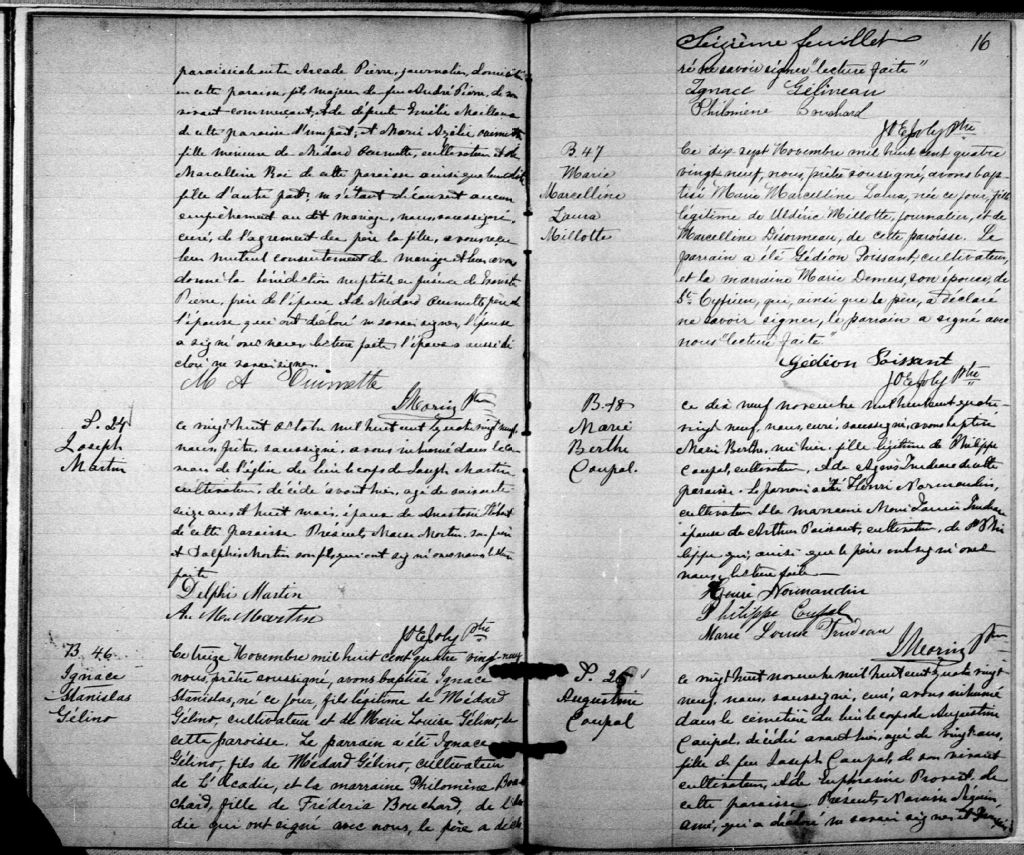 paroissiale entre Arcade Pierre, journalier, domicilié
en cette paroisse, fils majeur de feu André Pierre, de son
vivant commerçant, & de défunte Emélie
de cette paroisse d'une part; et Marie Azélie Ouimette
fille mineure de Médard Ouimette, cultivateur et de
Marcelline Roi de cette paroisse aussi
fille d'autre part; ne s'étant découvert aucun
empêchement au dit mariage, nous, soussigné,
curé, de l'agrement du père la fille, avons reçu
leur mutuel consentement de mariage & leur avons
donné la bénédiction nuptiale en présence de
Pierre, père de l'époux & de Médard Ouimette père de
l'épouse qui ont déclaré ne savoir signer, l'épouse
a signé avec nous, lecture faite, l'époux a aussi dé
claré ne savoir signer.
M A Ouimette
Morin Ptre
S. 24
Joseph
Martin
ce vingt huit octobre mil huit cent quatre vingt neuf,
nous, Prêtre, soussigné, avons inhumé dans le caveau
de l'église du lieu le corps de Joseph Martin
cultivateur, décédé avant hier, agé de soixante
seize ans et huit mois, époux de Anastasie Hébert
de cette paroisse. Présents, Moise Martin, son
et Delphis Martin son fils, qui ont signé avec nous lecture
faite
Delphis Martin
Martin
JOE Joly Ptre
B. 46
Ignace
Stanislas
Gélino
Ce treize Novembre mil huit cent quatre vingt-neuf
nous, prêtre soussigné, avons baptisé Ignace
Stanislas, né ce jour, fils légitime de Médard
Gélino, cultivateur et de Marie Louise Gélino, de
cette paroisse. Le parrain a été Ignace
Gélino, fils de Médard Gélino, cultivateur
de L'Acadie, et la marraine Philomène Bou
chard, fille de Fréderic Bouchard, de l'Aca
die qui ont signé avec nous, le père a décla
Seizième feuillet 16
ré ne savoir signer "lecture faite"
Ignace Gélineau
Philomène Bouchard
JOE Joly Ptre
B. 47
Marie
Marcelline
Laura
Millotte
Ce dix sept Novembre mil huit cent quatre
vingt neuf, nous, prêtre soussigné, avons bap
tisé Marie Marcelline Laura, née ce jour, fille
légitime de Uldéric Millotte, journalier, et de
Marcelline Désormeau, de cette paroisse. Le
parrain a été Gédéon Poissant, cultivateur,
et la marraine Marie Demers, son épouse, de
St. Cyprien, qui, ainsi que le père, a déclaré
ne savoir signer, le parrain a signé avec
nous "lecture faite"
Gédéon Poissant
JOE Joly Ptre
B. 48
Marie
Berthe
Coupal
ce dix neuf novembre mil huit cent quatre
vingt neuf, nous, curé, soussigné, avons baptisé
Marie Berthe, née hier, fille légitime de Philippe
Coupal, cultivateur, & de Agnès Trudeau de cette
paroisse. Le parrain a été Henri Normandin,
cultivateur & la marraine Marie Louise Trudeau
épouse de Arthur Poissant, cultivateur, de St. Phi
lippe qui, ainsi que le père, ont signé avec
nous, lecture faite
Henri Normandin
Philippe Coupal
Marie Louise Trudeau
Morin Ptre
S. 25
Augustine
Coupal
ce vingt huit novembre mil huit cent quatre vingt
neuf, nous, soussigné, curé, avons inhumé
dans le cimetière du lieu le corps de Augustine
Coupal, décédée avant hier, agée de vingt ans,
fille de feu Joseph Coupal, de son vivant
cultivateur, & de Euphrosine Provost, de
cette paroisse. Présents, Narcisse
ami, qui a déclaré ne savoir signer, et